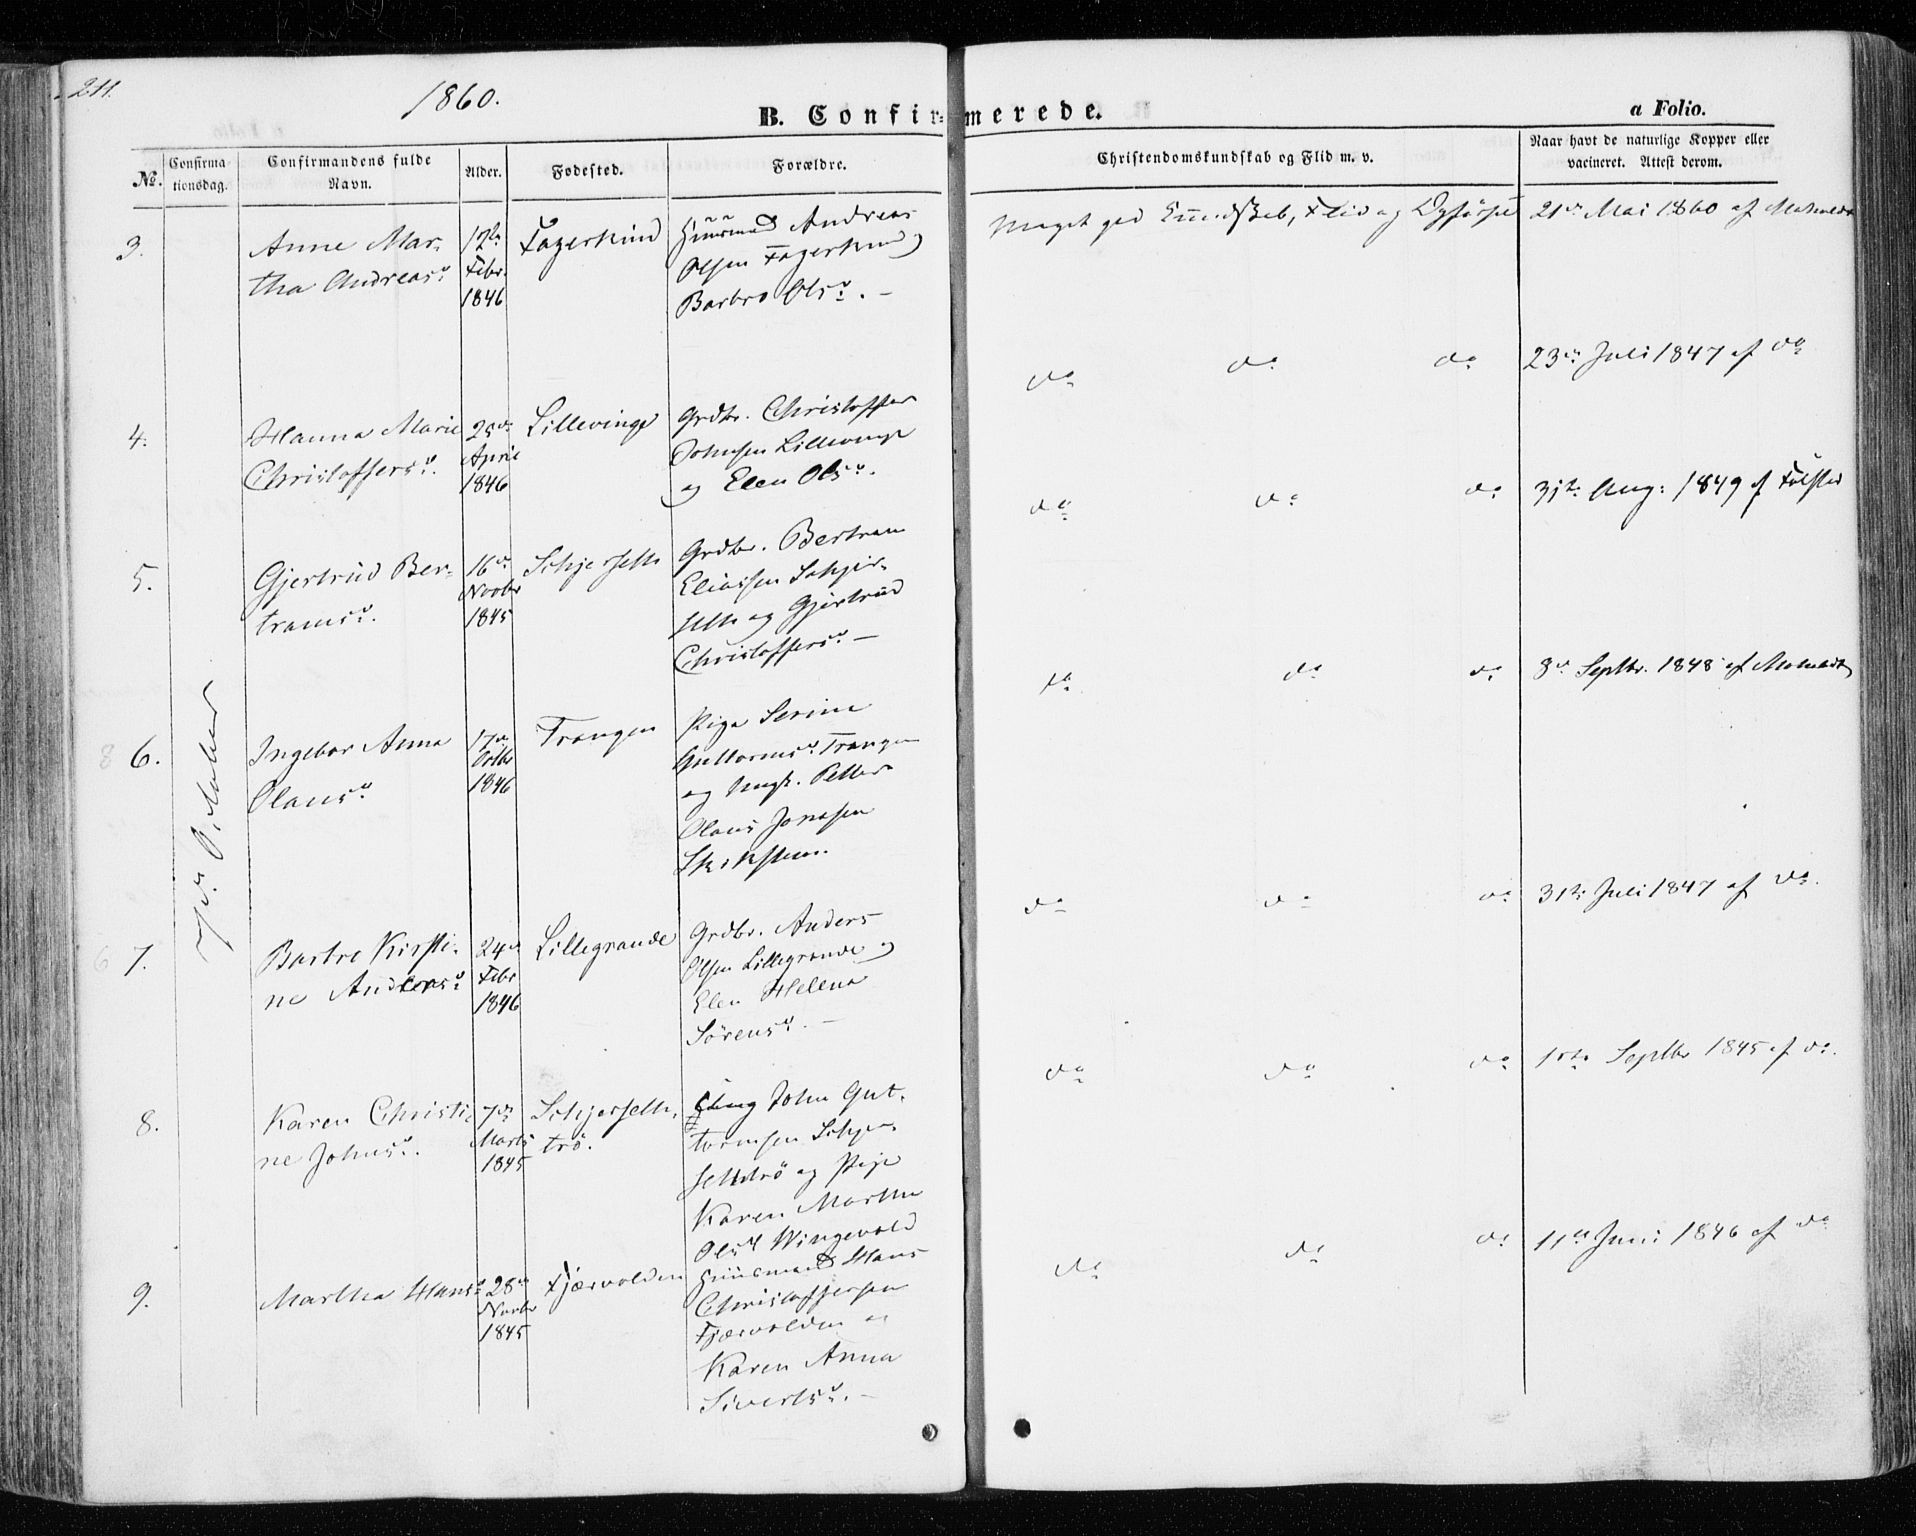 211.
1860.
B. Confirmerede.
a Folio.
No.
Confirma
tionsdag.
Confirmandens fulde
Navn.
Alder.
Fødested.
Forældre.
Christendomskundskab og Flid m. v.
Naar havt de naturlige Kopper eller
vacineret. Attest derom.
7de October
3.
Anne Mar-
tha Andreasd.
12te
Febr.
1846
Fagerhind
Huusmand Andreas
Olsen Fagerhind og
Barbro Olsd. -
Meget god Kundskab, Flid og
21de Mai 1860 af
4.
Hanna Marie
Christoffersd.
25de
April
1846
Lillevinge
Grdbr. Christoffer
Johnsen Lillevinge
og Elen Olsd.
do do do
23de Juli 1847 af do
5.
Gjertrud Ber-
tramsd.
16de
Novbr
1845
Schjerseth
Grdbr. Bertram
Eliassen Schjer-
seth og Gjertrud
Christoffersd. -
do do do
31te Aug: 1849 af
6.
Ingebor Anna
Olausd.
17de
Octbr
1846
Trangen
Pige Serine
Guttormsd. Trangen
og Ungk. Petter
Olaus Jonasen
do do do
8de Septbr. 1848 af
7.
Barbro Kirsti-
ne Andersd.
24de
Febr
1846
Lillegrande
Grdbr. Anders
Olsen Lillegrande og
Elen Helena
Sørensd. -
do do do
31te Juli 1847 af do.
8.
Karen Christi-
ne Johnsd.
7de
Marts
1845
Schjerseth-
trø.
Ung John Gut-
tormsen Schjer-
sethtrø og Pige
Karen Martha
Olsd Wingevold
do do do
Septbr 1845 af do.
9.
Martha Hansd.
28de
Novbr
1845
Fjærvolden
Huusmand Hans
Christoffersen
Fjærvolden og
Karen Anna
Sivertsd. -
do do do
11te Juni 1846 af do